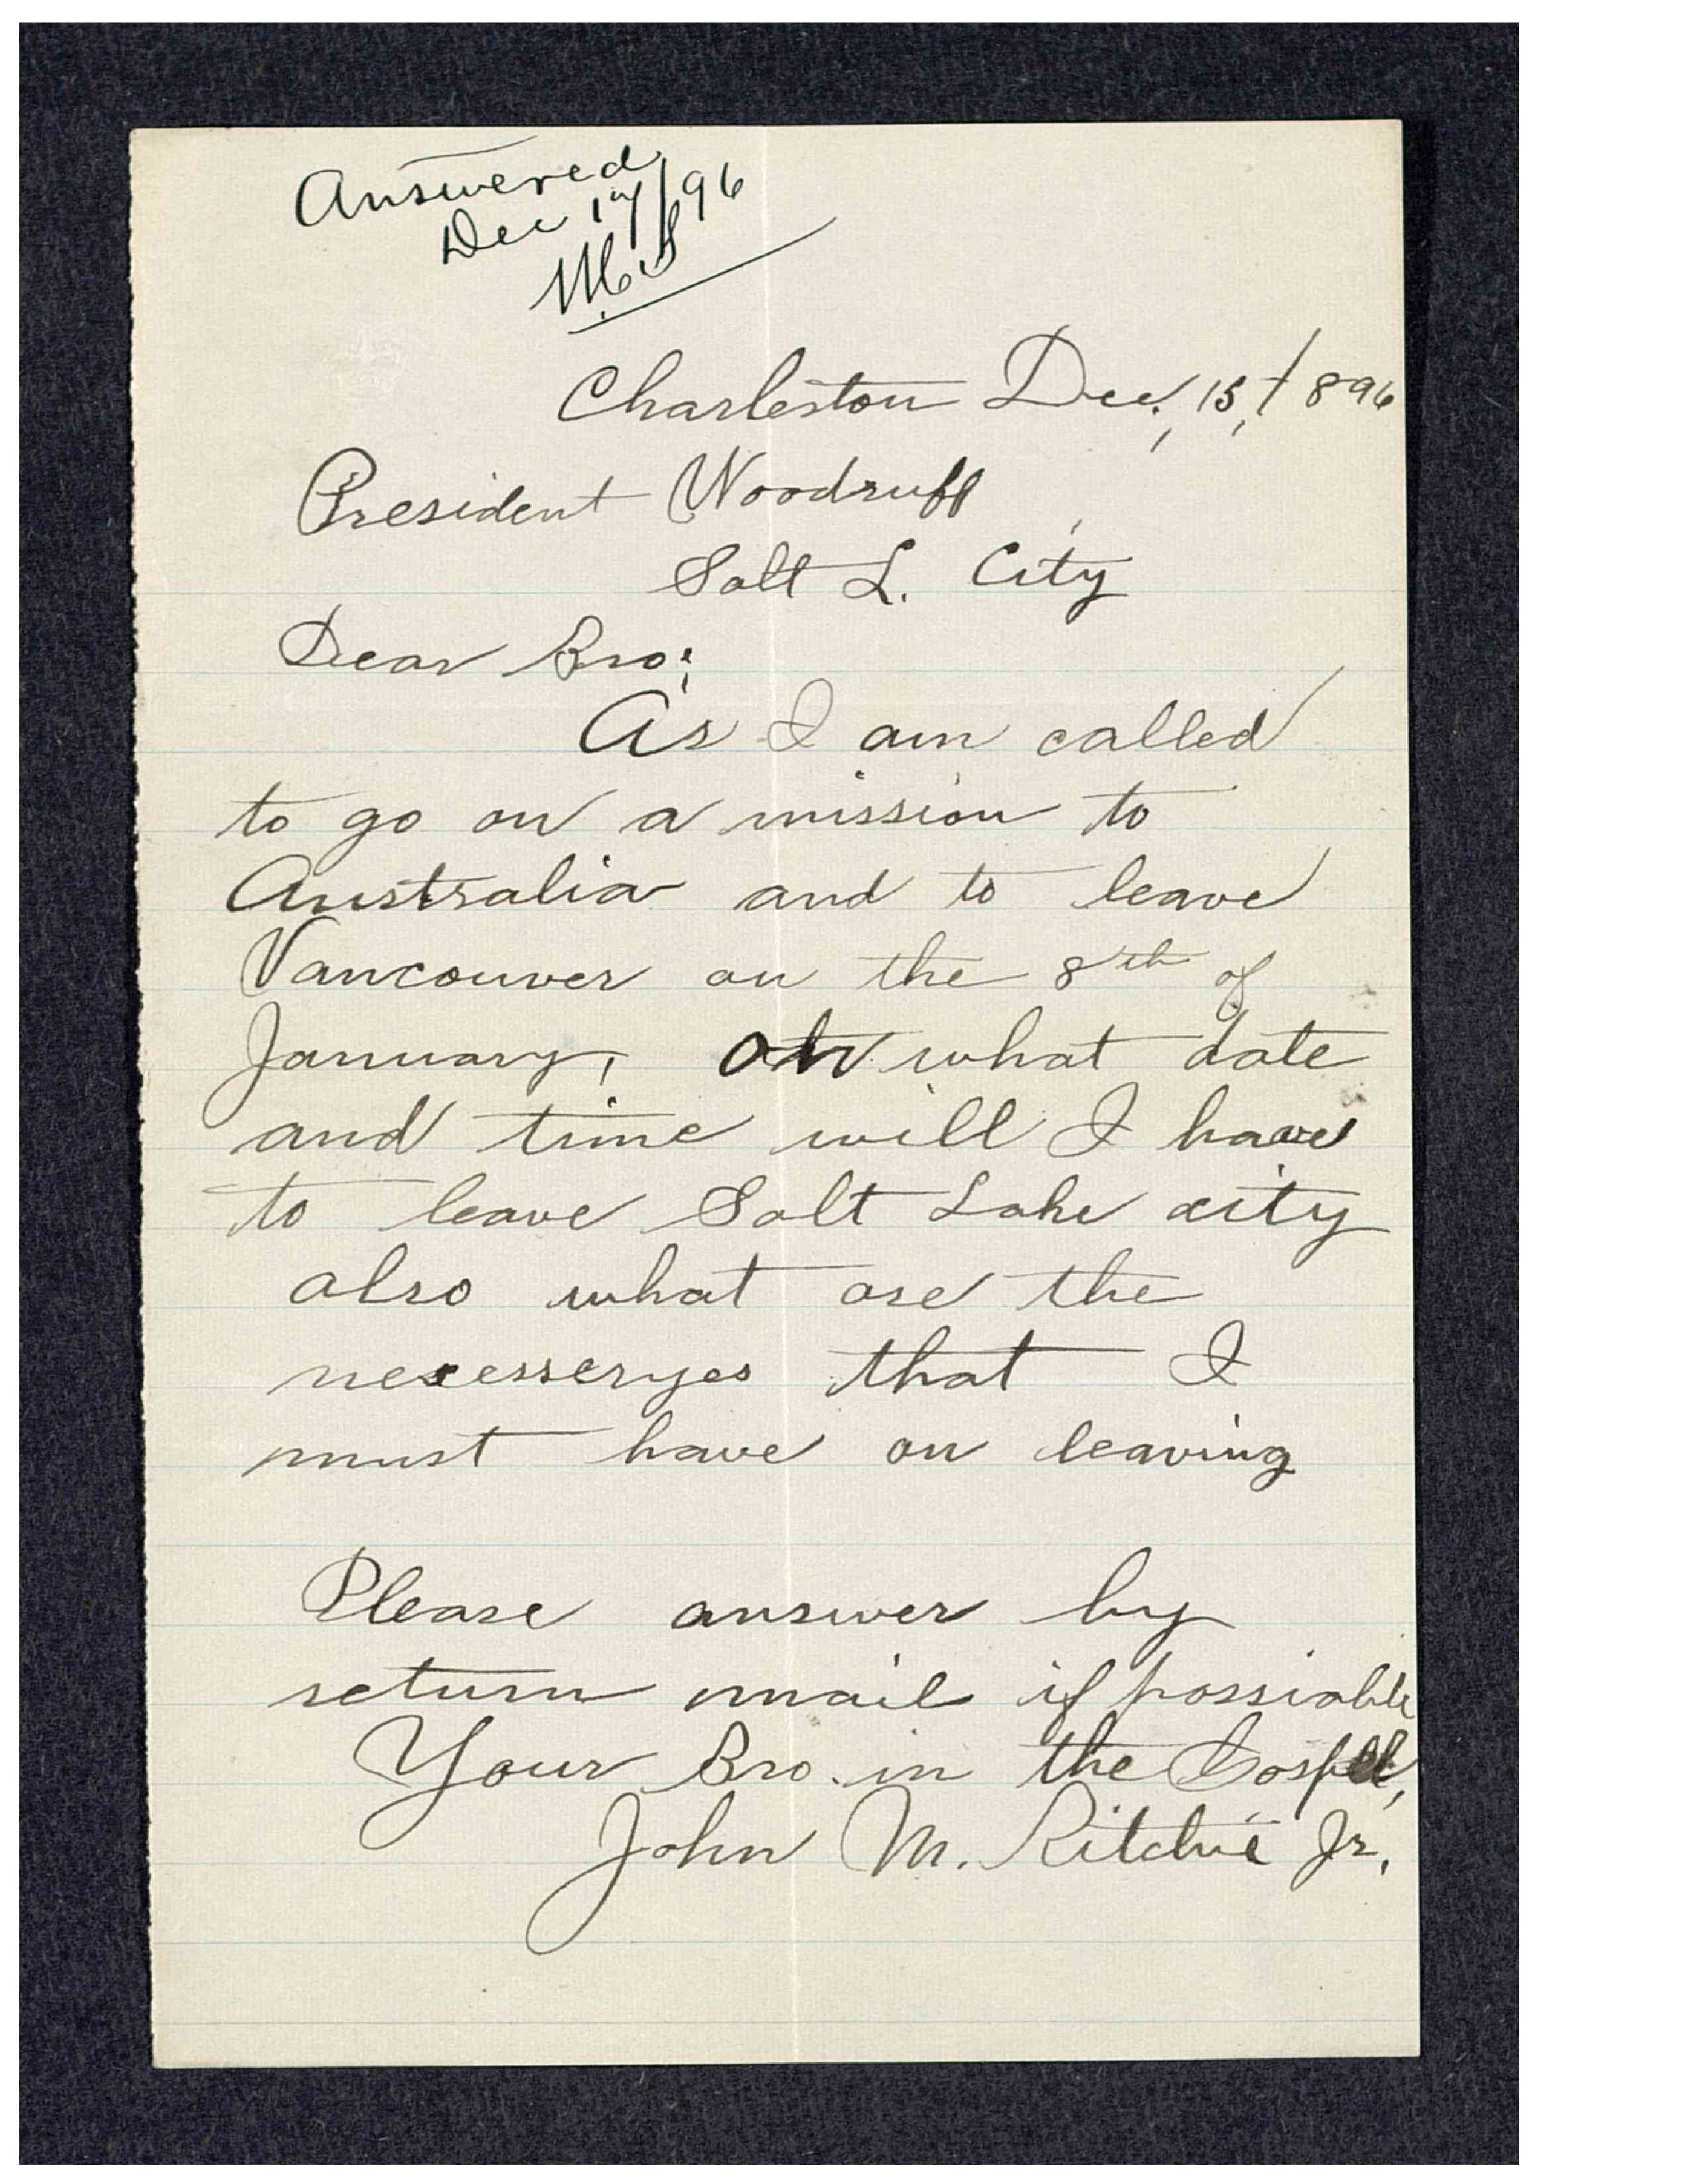 Answered
Dec 17/96
Charleston Dec, 15, 1896
President Woodruff
Salt L. City
Dear Bro;
As I am called
to go on a mission to
Australia and to leave
Vancouver on the 8th of
January, on what date
and time will I have
to leave Salt Lake city
also what are the
necesseryes that I
must have on leaving
Please answer by
return mail if possiable
Your Bro. in the Gospel,
John M. Ritchie Jr.